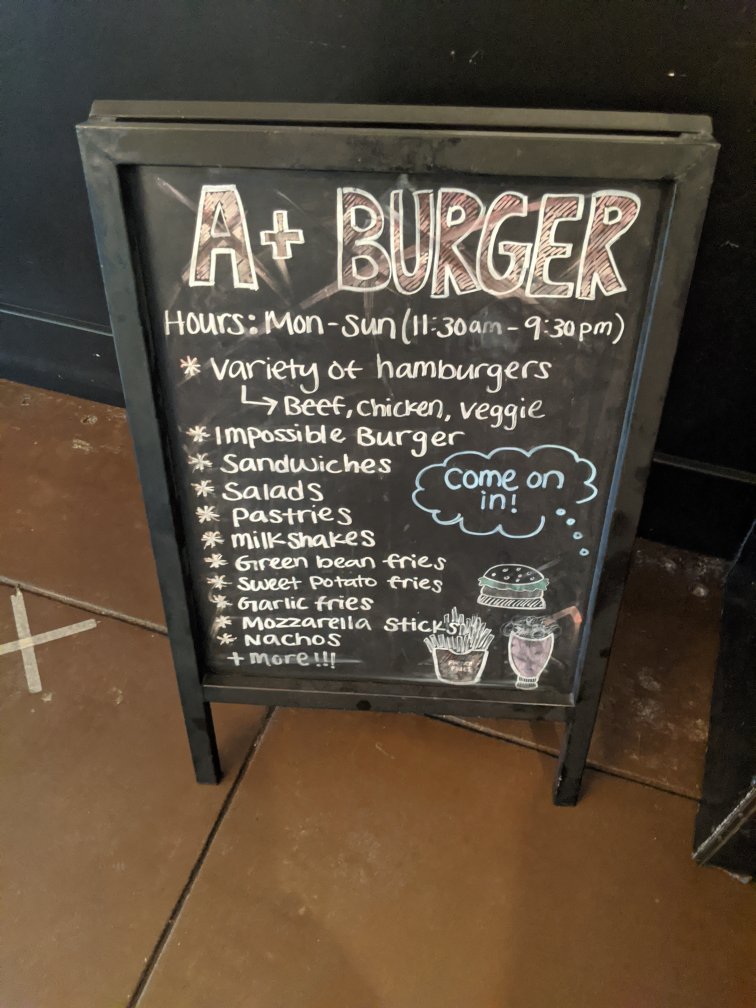 A+ BURGER
Hours: Mon-Sun (11:30am - 9:30pm)
* Variety of hamburgers
↳ Beef, Chicken, Veggie
* Impossible Burger
* Sandwiches
* Salads
* Pastries
* milkshakes
* Green bean fries
* Sweet Potato fries
* Garlic fries
* Mozzarella Sticks
* Nachos
+ more!!!
come on
in!